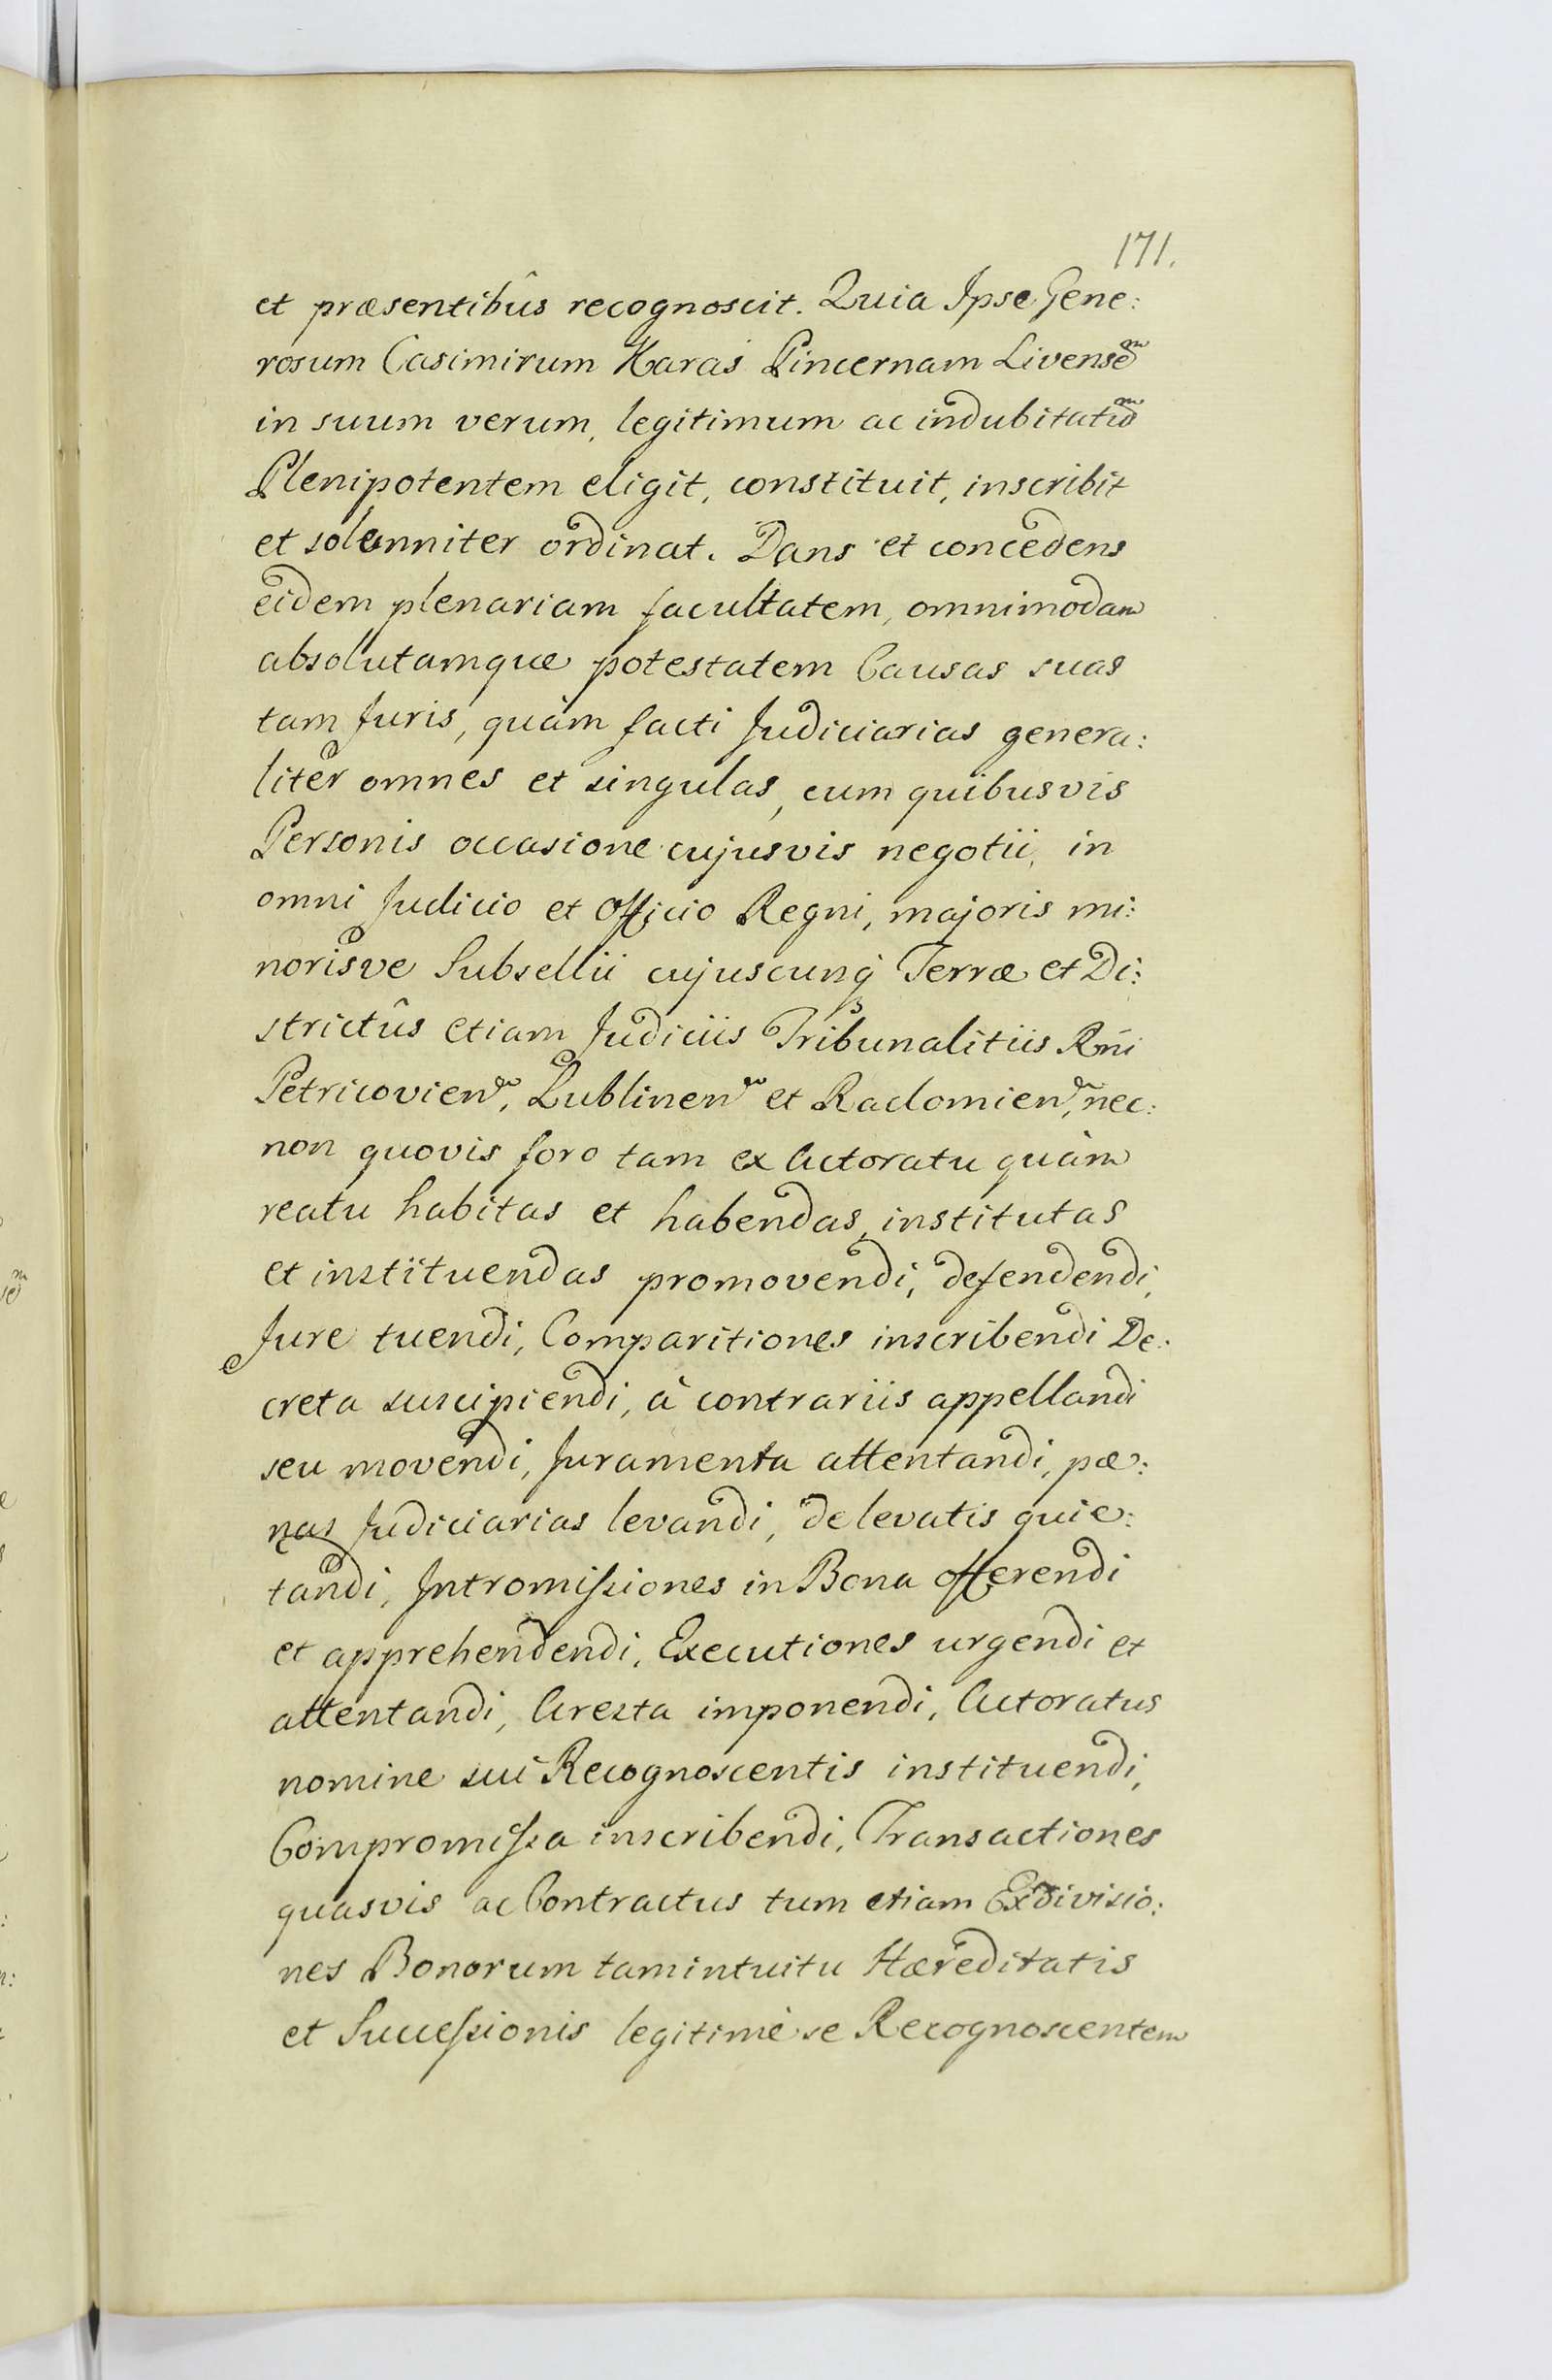 171.
et præsentibûs recognoscit. Quia Ipse Gene:
rosum Casimirum Karaś Pincernam Livensēm
in suum verum, legitimum ac indubitatūm
Plenipotentem eligit, constituit, inscribit
et solenniter ordinat. Dans et concedens
eidem plenariam facultatem, omnimodam
absolutamque potestatem Causas suas
tam Juris, quàm facti Judiciarias genera:
liter omnes et singulas, cum quibusvis
Personis occasione cujusvis negotii, in
omni Judicio et Officio Regni, majoris mi:
norisve Subsellii cujuscunq́ Terræ et Di:
strictûs etiam Judiciis Tribunalitiis Rni
Petricovien, Lublinen et Radomien, nec:
non quovis foro tam ex Actoratu quàm
reatu habitas et habendas, institutas
et instituendas promovendi, defendendi,
Jure tuendi, Comparitiones inscribendi De:
creta suscipiendi, à contrariis appellandi
seu movendi, Juramenta attentandi, pæ:
nas Judiciarias levandi, de levatis quie:
tandi, Intromissiones in Bona offerendi
et apprehendendi, Executiones urgendi et
attentandi, Aresta imponendi, Actoratus
nomine sui Recognoscentis instituendi,
Compromissa inscribendi, Transactiones
quasvis ac Contractus tum etiam Exdivisio:
nes Bonorum tam intuitu Hæreditatis
et Successionis legitimè se Recognoscentem